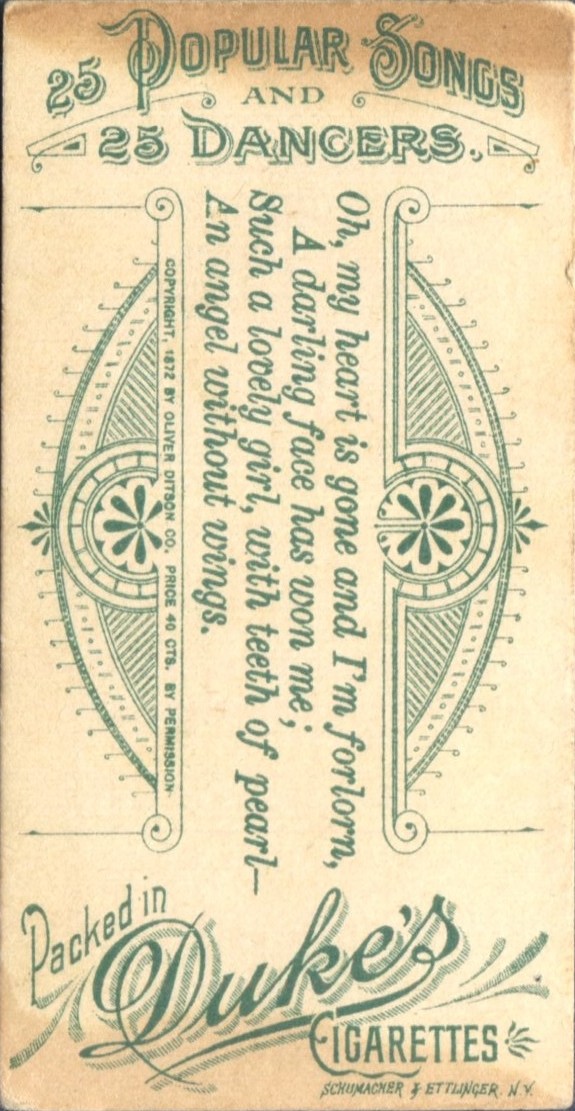 25 POPULAR SONGS
AND
25 DANCERS.
Oh, my heart is gone and I'm forlorn,
A darling face has won me;
Such a lovely girl, with teeth of pearl—
An angel without wings.
COPYRIGHT, 1872 BY OLIVER DITSON CO. PRICE 40 CTS. BY PERMISSION.
Packed in
Duke's
CIGARETTES
SCHUMACHER & ETTLINGER. N.Y.